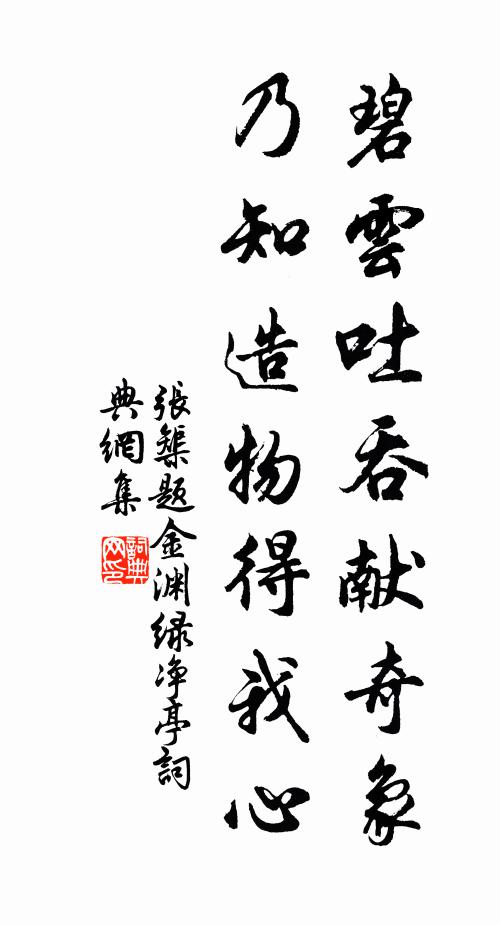 碧雲吐吞献奇象
乃知造物得我心
張榘题金渊绿净亭詞
典網集
詞典網印